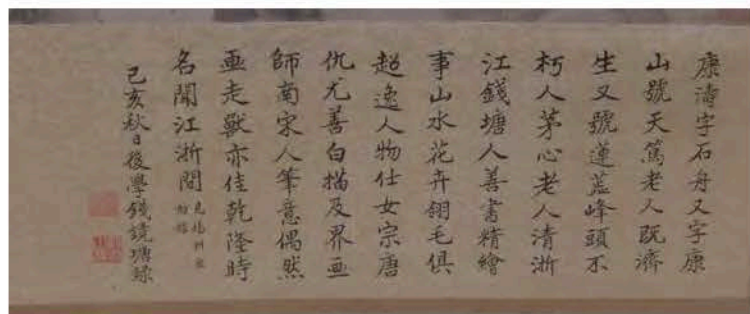 康濤字石舟又字康
山號天篤老人既濟
生又號蓮蕊峰頭不
朽人茅心老人清浙
江錢塘人善書精繪
事山水花卉翎毛俱
超逸人物仕女宗唐
仇尤善白描及界画
師南宋人筆意偶然
画走獸亦佳乾隆時
名聞江浙間見揚州画舫錄
己亥秋日後學錢鏡塘録